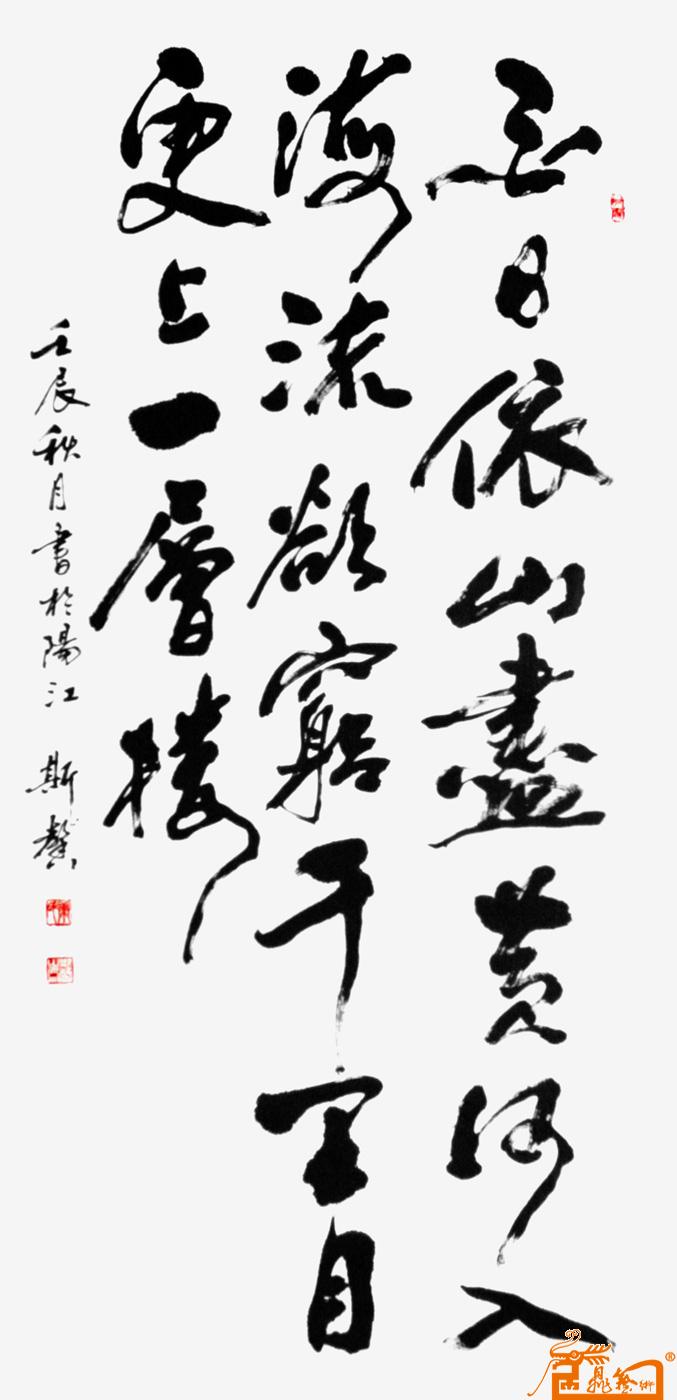 白日依山盡黄河入
海流欲窮千里目
更上一層樓
壬辰秋月書於陽江 斯馨